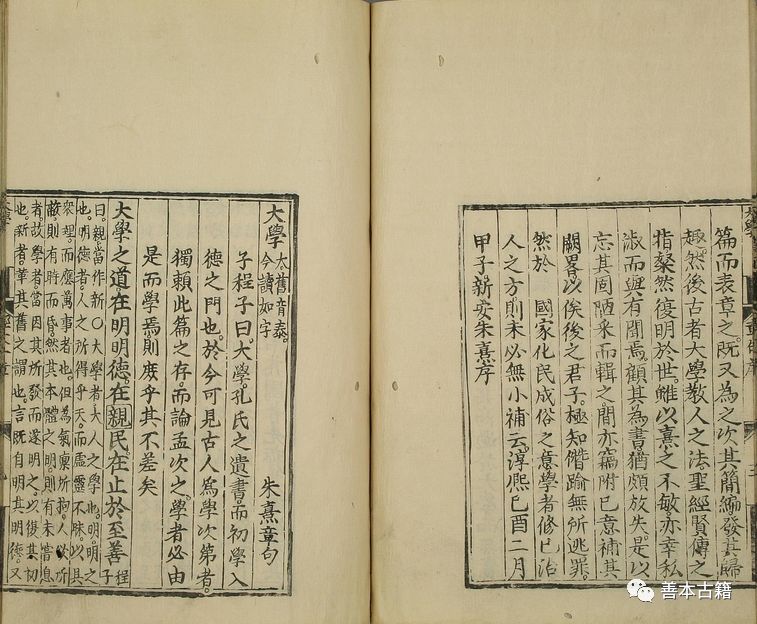 篇而表章之。既又為之次其簡編發其歸
趣。然後古者大學教人之法。聖經賢傳之
指粲然復明於世。雖以熹之不敏。亦幸私
淑而與有聞焉。顧其為書猶頗放失。是以
忘其固陋采而輯之。間亦竊附己意補其
闕畧以俟後之君子。極知僭踰無所逃罪。
然於 國家化民成俗之意學者修己治
人之方。則未必無小補云。淳熙己酉二月
甲子新安朱熹序
大學 大舊音泰。今讀如字
朱熹章句
子程子曰。大學。孔氏之遺書。而初學入
德之門也。於今可見古人爲學次第者。
獨賴此篇之存。而論孟次之。學者必由
是而學焉則庶乎其不差矣
大學之道在明明德。在親民。在止於至善 程子
曰。親。當作新○大學者。大人之學也。明。明之
也。明德者。人之所得乎天。而虛靈不昧。以具
衆理。而應萬事者也。但為氣稟所拘。人欲所
蔽。則有時而昏。然其本體之明。則有未嘗息
者。故學者。當因其所發而遂明之。以復其初
也。新者。革其舊之謂也。言既自明其明德。又
善本古籍